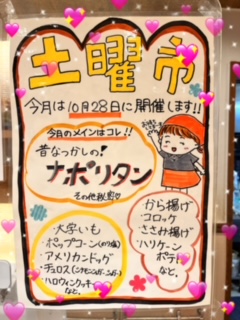 土曜市
今月は10月28日に開催します!!
今月のメインはコレ!!
昔なつかしの!
ナポリタン
その他
・大学いも
・ポップコーン
・アメリカンドッグ
・チュロス
・ハロウィンクッキー
など、
・から揚げ
・コロッケ
・ささみ揚げ
・ハリケーン
ポテト
など、